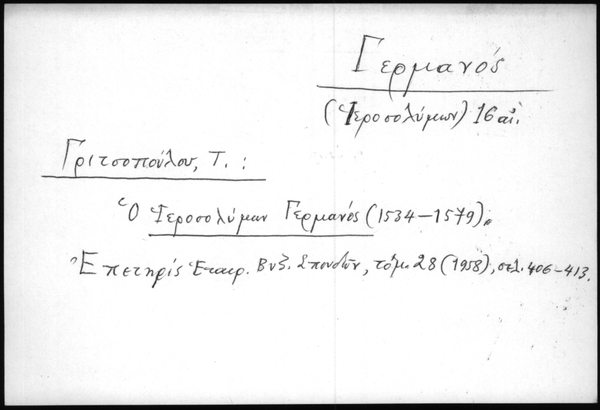 Γερμανός
(Ἱεροσολύμων) 16 αἰ.
Γριτσοπούλου, Τ. :
Ὁ Ἱεροσολύμων Γερμανός (1534-1579).
Ἐπετηρίς Ἑταιρ. Βυζ. Σπουδῶν, τόμ. 28 (1958), σελ. 406-413.